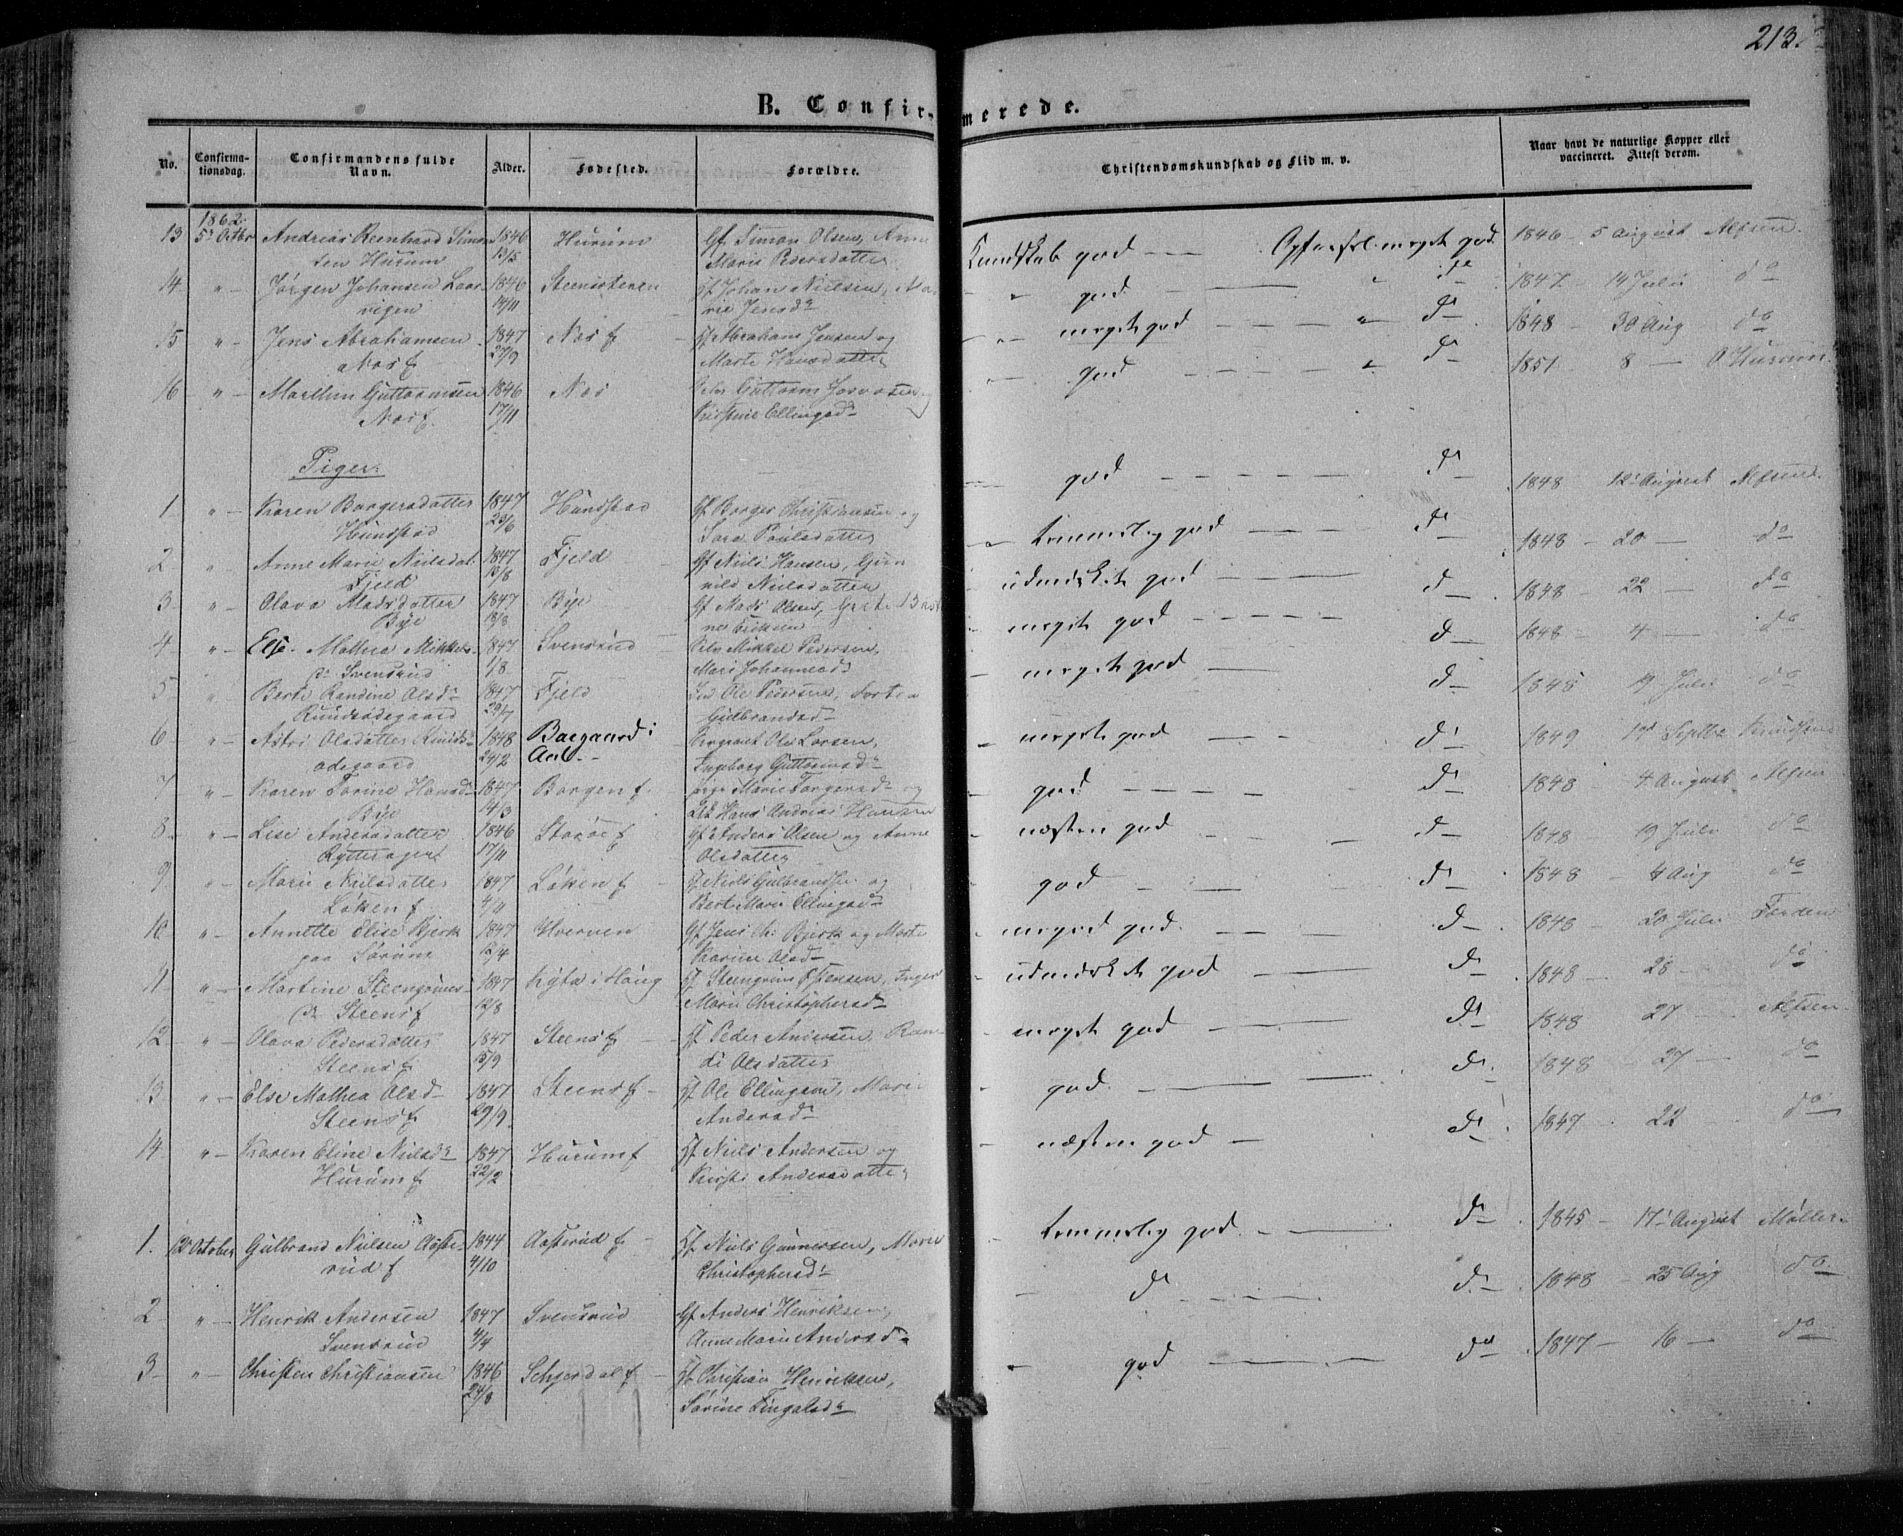 213.
B. Confirmerede.
No. Confirmationsdag. Confirmandens fulde Navn. Alder. Fødested. Forældre. Christendomskundskab og Flid m. v. Naar havt de naturlige Kopper eller vaccineret. Attest derom.
1862
13 5' Octbr Andreas Reinhard Simon 1846 Hurum Gf. Simon Olsen, Anne Kundskab god — Opførsel meget god. 1846 - 5 August Alfsen.
sen Hurum 13/5 Marie Pedersdatter
14 " Jørgen Johansen Laar 1846 Steensteren gf Johan Nielsen, Ma " god — " do 1847 - 14 Juli do
vigen 14/11 rie Jensdr
15 " Jens Abrahamsen 1847 Næs f gf Abraham Jensen og " meget god — " do 1848 - 30 Aug do
Næs f 27/9 Marte Hansdatter
16 " Marthin Guttormsen 1846 Næs Selv Guttorm " god — " do 1851 8 — O Hurum
Næs f. 17/11 Kirstine Ellingsdr
Piger.
1 " Karen Borgersdatter 1847 Hundstad gf Borger Christiansen og god — do 1848 12' August Alfsen.
Hundstad 23/6 Sara Poulsdatter
2 " Anne Marie Nielsdat 1847 Fjeld Gf Niels Hansen, Gun temmelig god — do 1848 - 20 — do
Fjeld 13/8 nild Nielsdatter
3 " Olava Madsdatter 1847 Bye Gf Mads Olsen, Grete udmærket god — do 1848 - 22 — do
Bye 18/8
4 " Else Mathea Mikkels 1847 Svensrud Selv Mikkel Pedersen, meget god — do 1848 - 4 — do
dr Svensrud 1/8 Mari Johannesdr
5 " Berte Randine Olsdr 1847 Fjeld Ole Pedersen, Dortea meget god — do 1848 19 Juli do
29/7 Gulbrandsd
6 " Astri Olsdatter 1848 Baegaard i Ole Larsen, meget god — do 1849 Septbr Knudsen
odegaard 24/2 Aal. Ingeborg Guttormsdr
7 " Karen Torine Hansdr 1847 Borgen f. pige Marie Torgersdr og god — do 1848 4 August Alfsen
Bye 14/3 Hans Andreas Hansen
8 " Lise Andersdatter 1846 Storøe f gf Anders Olsen og Anne næsten god — do 1848 19 Juli do
Rytteragent 17/11 Olsdatter
9 " Marie Nielsdatter 1847 Løken f gf Niels Gulbrandsen og god — do 1848 - 4 Aug do
Løken f 4/11 Bert Marie Ellingsdr
10 " Annette Elise Bjerk 1847 Hverven Gf Jens Ch: Bjerk og Marte meget god — do 1848 - 20 Juli Forden
paa Sørum 12/4 Karine Olsdr
11 " Martine Steengrims 1847 Lyta i Houg gf Steengrim Ostensen, Inger udmærket god — do 1848 - 28 — do
dr Steens f 12/8 Marie Christophersdr
12 " Olava Pedersdatter 1847 Steens f gf Peder Andersen, Ran meget god — do 1848 27 — Alfsen
Steens f 15/9 di Olsdatter
13 " Else Mathea Olsd 1847 Steens f gf. Ole Ellingsen, Marie god — do 1848 - 27 — do
Steens f 29/9 Andersdr
14 " Karen Eline Nielsdr 1847 Hurum f gf Niels Andersen og næsten god — do 1847 - 22 — do
Hurum f 22/2 Kirsti Andersdatter
1. 12' October Gulbrand Nielsen Aaste 1844 Aasterud f gf. Niels Gunnersen, Marie temmelig god — do 1845 - 17' August Møller
rud f 4/10 Christophersdr
2 " Henrik Andersen 1847 Svensrud Gf Anders Henriksen, do — do 1848 - 25 Aug do
Svensrud 4/4 Anne Marie Andersdr
3 " Christen Christiansen 1846 Schjerdal f gf Christian Henriksen, god — do 1847 - 16 — do
24/8 Sørine Fingalsdr